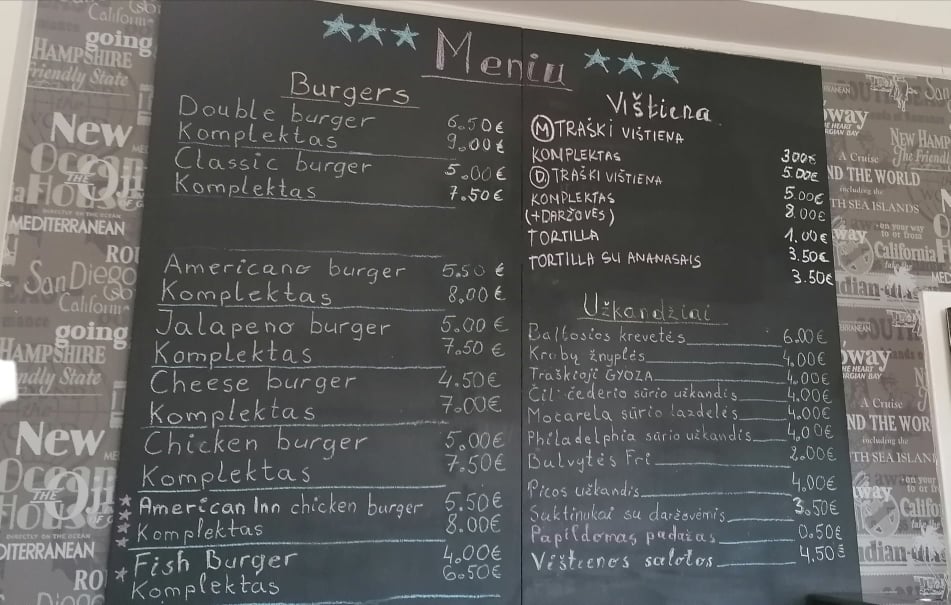 Meniu
Burgers
Double burger 6.50€
Komplektas 9.00€
Classic burger 5.00€
Komplektas 7.50€
Americano burger 5.50€
Komplektas 8.00€
Jalapeno burger 5.00€
Komplektas 7.50€
Cheese burger 4.50€
Komplektas 7.00€
Chicken burger 5.00€
Komplektas 7.50€
American Inn chicken burger 5.50€
Komplektas 8.00€
Fish Burger 4.00€
Komplektas 6.50€
Vištiena
M TRAŠKI VIŠTIENA 300€
KOMPLEKTAS 5.00€
D TRAŠKI VIŠTIENA 5.00€
KOMPLEKTAS 8.00€
(+DARŽOVĖS) 1.00€
TORTILLA 3.50€
TORTILLA SU ANANASAIS 3.50€
Užkandžiai
Baltosios krevetės 6.00€
Krabų žnyplės 4.00€
Traškioji GYOZA 4.00€
Čil čederio sūrio užkandis 4.00€
Mocarela sūrio lazdelės 4.00€
Philadelphia sūrio užkandis 4.00€
Bulvytės Fri 2.00€
Picos užkandis 4.00€
Suktinukai su daržovėmis 3.50€
Papildomas padažas 0.50€
Vištienos salotos 4.50€
going
HAMPSHIRE
Friendly State
New
Ocean
THE
House
DIRECTLY ON THE OCEAN
MEDITERRANEAN
San Diego
Californi
going
HAMPSHIRE
ndly State
New
Ocean
THE
House
DIRECTLY ON THE OCEAN
DITERRANEAN
A Cruise
ND THE WORLD
including the
TH SEA ISLANDS
on your way
to or from
California
A Cruise
ND THE WOR
including the
TH SEA ISLAN